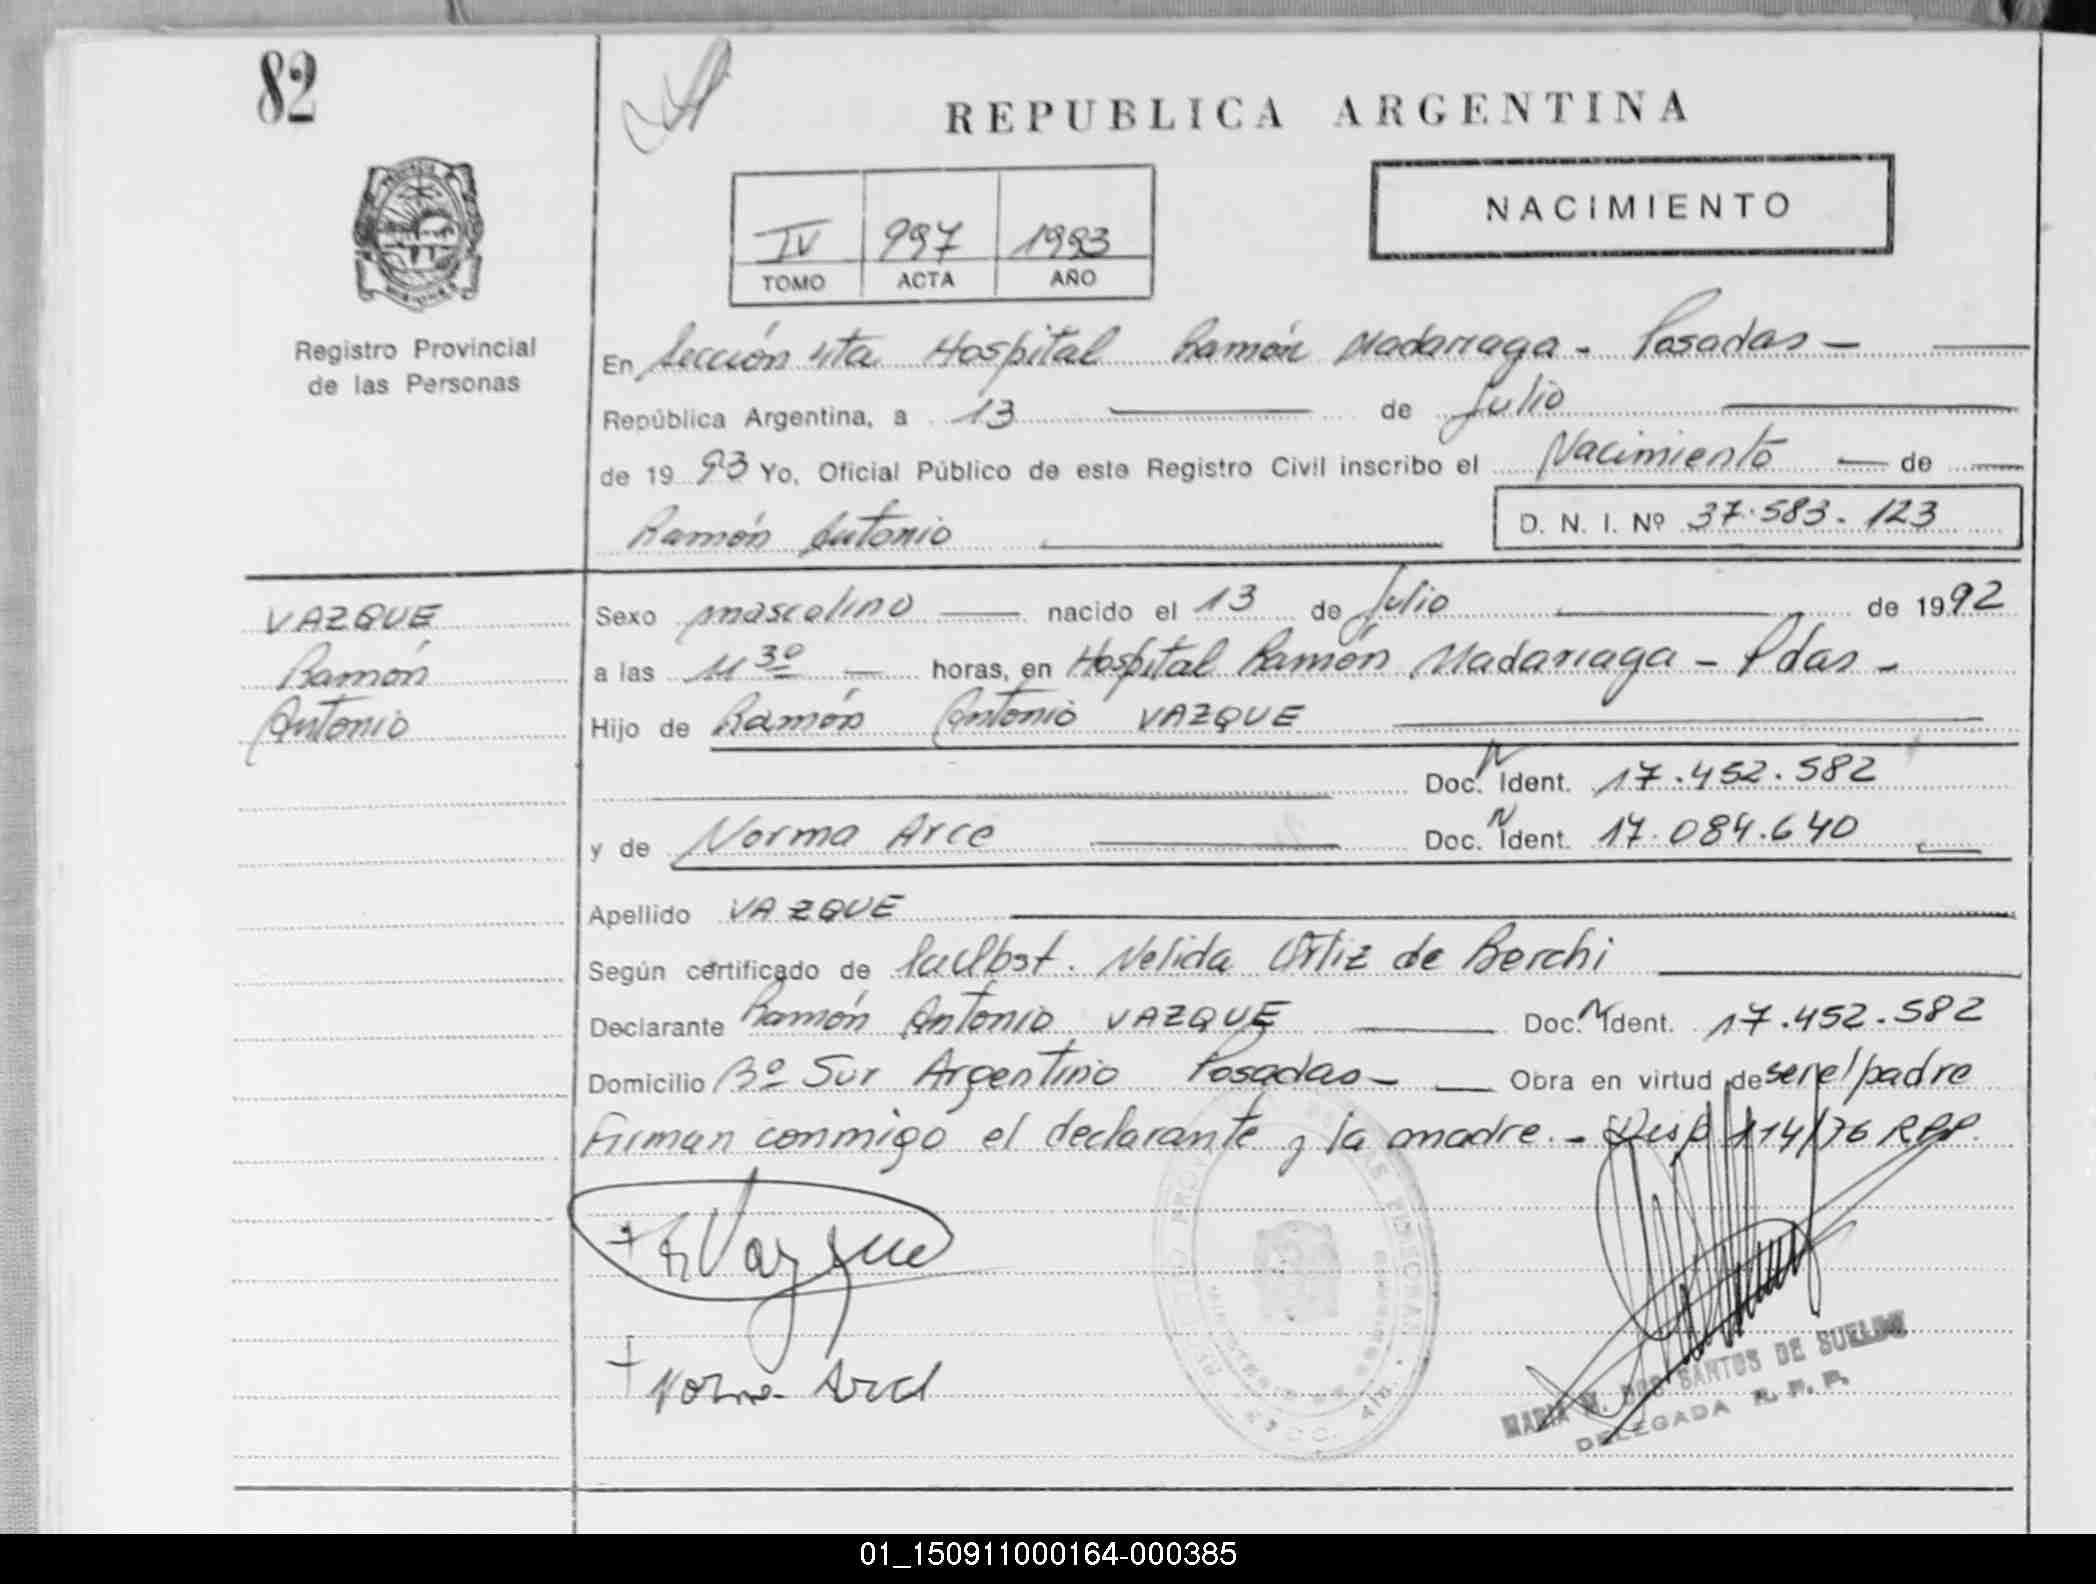 82
REPUBLICA ARGENTINA
NACIMIENTO
IV 997 1993
TOMO ACTA AÑO
Registro Provincial
de las Personas
En Sección 4ta Hospital Ramón Madariaga - Posadas -
República Argentina, a 13 de Julio
de 1993 Yo, Oficial Público de este Registro Civil inscribo el Nacimiento de
Ramón Antonio
D. N. I. Nº 37.583.123
VAZQUE
Ramón
Antonio
Sexo masculino nacido el 13 de Julio de 1992
a las 11 30 horas, en Hospital Ramón Madariaga - Pdas -
Hijo de Ramón Antonio VAZQUE
Doc. N Ident. 17.452.582
y de Norma Arce Doc. N Ident. 17.084.640
Apellido VAZQUE
Según certificado de Nelida Ortiz de Berchi
Declarante Ramón Antonio VAZQUE Doc. N Ident. 17.452.582
Domicilio Bº Sur Argentino Posadas - Obra en virtud de ser el padre
Firman conmigo el declarante y la madre. - Disp 114/76 RPP.
+ R Vazque
+ Norma Arce
MARIA M. DOS SANTOS DE SUELDO
DELEGADA R. P. P.
01_150911000164-000385